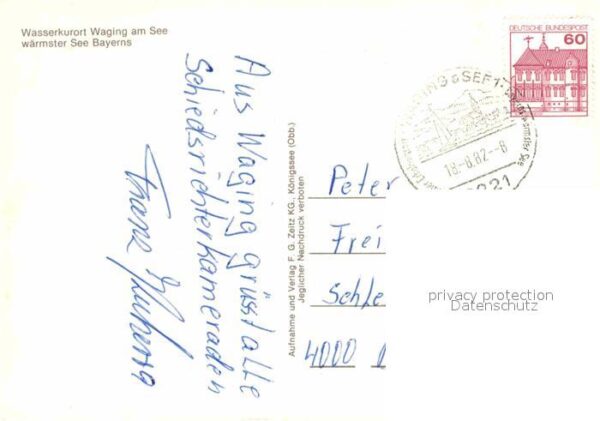 Wasserkurort Waging am See
wärmster See Bayerns
Aus Waging grüsst alle
Schiedsrichterkameraden
Franz
Aufnahme und Verlag F. G. Zeitz KG., Königssee (Obb.)
Jeglicher Nachdruck verboten
DEUTSCHE BUNDESPOST
60
WAGING a SEE 1
18.-8.82.--8
8221
Peter
Frei
Schle
4000
privacy protection
Datenschutz